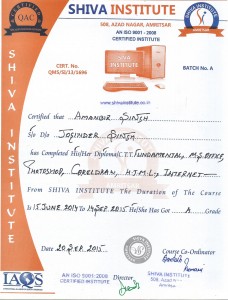 SHIVA INSTITUTE
50B, AZAD NAGAR, AMRITSAR
QAC
AN ISO 9001 - 2008
CERTIFIED INSTITUTE
CERT. NO.
QMS/SI/13/1696
BATCH No. A
SHIVA INSTITUTE
www.shivainstitute.co.in
Certified that Amandip Singh
S/o D/o Joginder Singh
has Completed His/Her Diploma I.T. Fundamental, M.S. Office,
Photoshop, CorelDraw, H.T.M.L, Internet
From SHIVA INSTITUTE The Duration of The Course
is 15 June 2014 To 14 Sep. 2015. He/She Has Got A Grade
Date 20 Sep. 2015
Course Co-Ordinator
IAQS
AN ISO 9001 - 2008
CERTIFIED INSTITUTE
Director
SHIVA INSTITUTE
50B, Azad Nagar
Amritsar